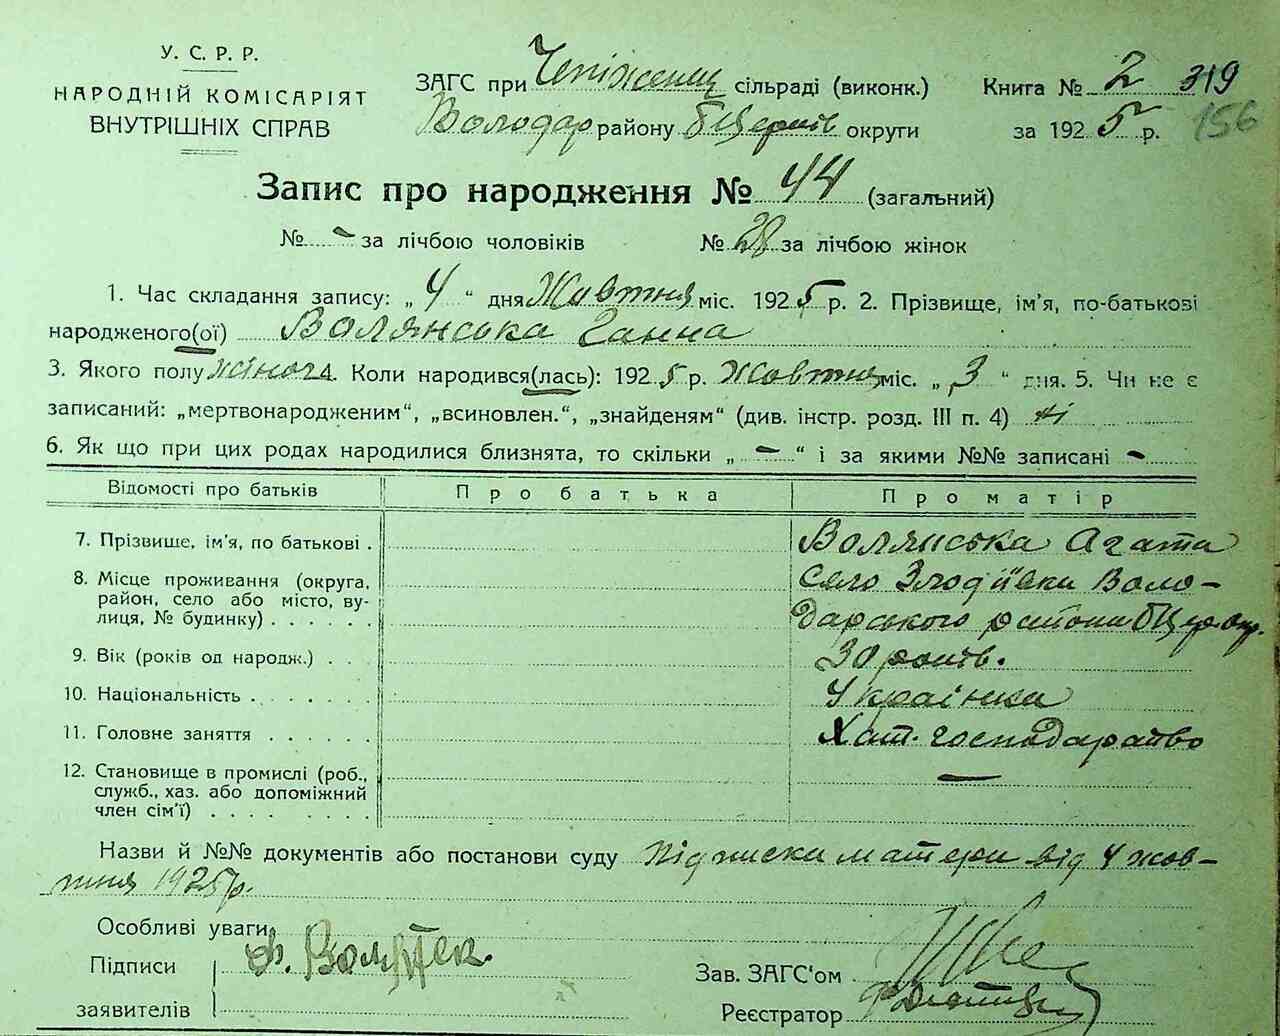 У. С. Р. Р.
НАРОДНІЙ КОМІСАРІЯТ
ВНУТРІШНІХ СПРАВ
ЗАГС при сільраді (виконк.)
Володар району БЦерків округи
Книга № 2 319
за 1925 р. 156
Запис про народження № 44 (загальний)
№ - за лічбою чоловіків № 28 за лічбою жінок
1. Час складання запису: „ 4 “ дня Жовтня міс. 1925 р. 2. Прізвище, ім'я, по-батькові
народженого(ої) Волянська Ганна
3. Якого полу жіноч 4. Коли народився(лась): 1925 р. жовтня міс. „ 3 “ дня. 5. Чи не є
записаний: „мертвонародженим“, „всиновлен.“, „знайденям“ (див. інстр. розд. III п. 4) ні
6. Як що при цих родах народилися близнята, то скільки „ - “ і за якими №№ записані -
Відомості про батьків Про батька Про матір
7. Прізвише, ім'я, по батькові . Волянська Агата
8. Місце проживання (округа, село Злодіївки Воло-
район, село або місто, ву- дарського району БЦер. окр.
лиця, № будинку) . . . . . .
9. Вік (років од народж.) . . . 30 років.
10. Національність . . . . . . Українка
11. Головне заняття . . . . . . Хат. господарство
12. Становище в промислі (роб., —
служб., хаз. або допоміжний
член сім'ї) . . . . . . . . .
Назви й №№ документів або постанови суду Підписки матери від 4 жов-
тня 1925 р.
Особливі уваги
Підписи
заявителів
Зав. ЗАГС'ом
Реєстратор